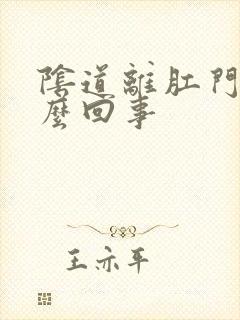 陰道離肛門
麼回事
王亦平